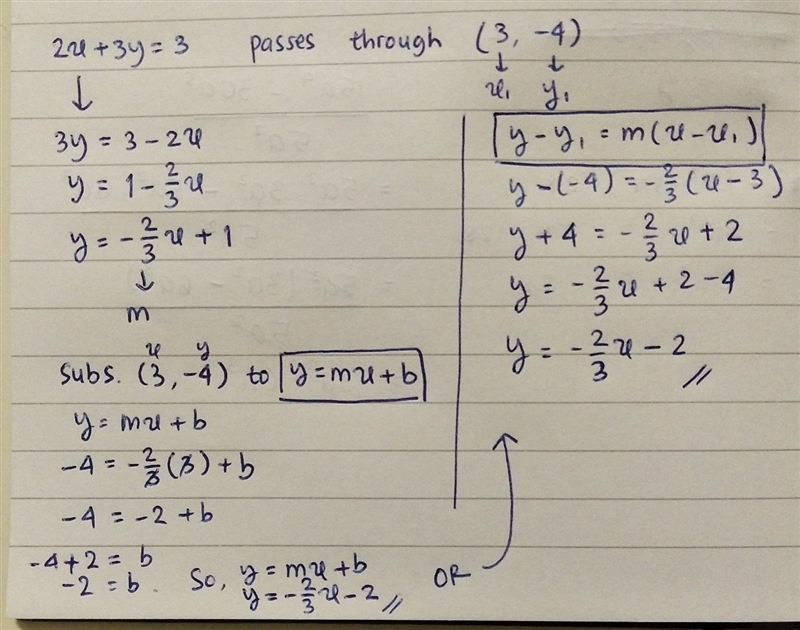 2x + 3y = 3 passes through (3, -4)
↓ ↓ ↓
x₁ y₁
3y = 3 - 2x
y = 1 - 2/3 x
y = - 2/3 x + 1
↓
m
x y
subs. (3, -4) to y = mx + b
y = mx + b
-4 = - 2/3 (3) + b
-4 = -2 + b
-4 + 2 = b
-2 = b.
So, y = mx + b
y = - 2/3 x - 2 //
OR
y - y₁ = m(x - x₁)
y - (-4) = - 2/3 (x - 3)
y + 4 = - 2/3 x + 2
y = - 2/3 x + 2 - 4
y = - 2/3 x - 2
//